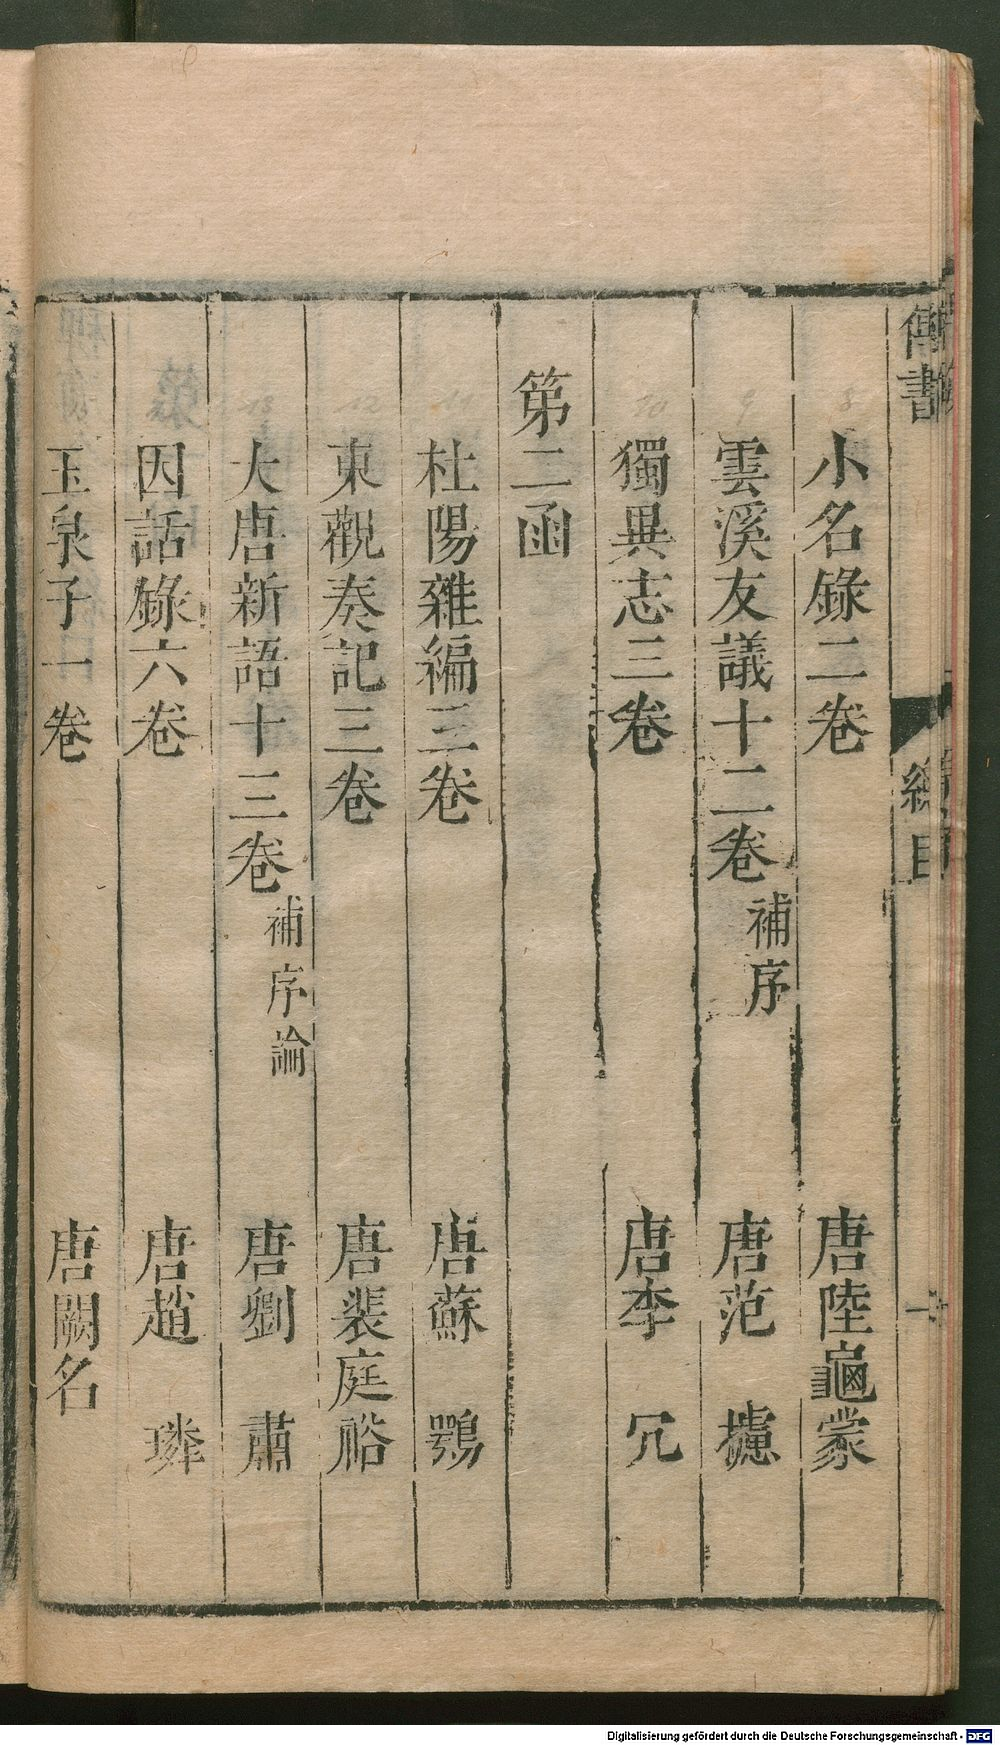 小名錄二卷 唐陸龜蒙
雲溪友議十二卷 補序 唐范攄
獨異志三卷 唐李冗
第二函
杜陽雜編三卷 唐蘇鶚
東觀奏記三卷 唐裴庭裕
大唐新語十三卷 補序論 唐劉肅
因話錄六卷 唐趙璘
玉泉子一卷 唐闕名
Digitalisierung gefördert durch die Deutsche Forschungsgemeinschaft - DFG